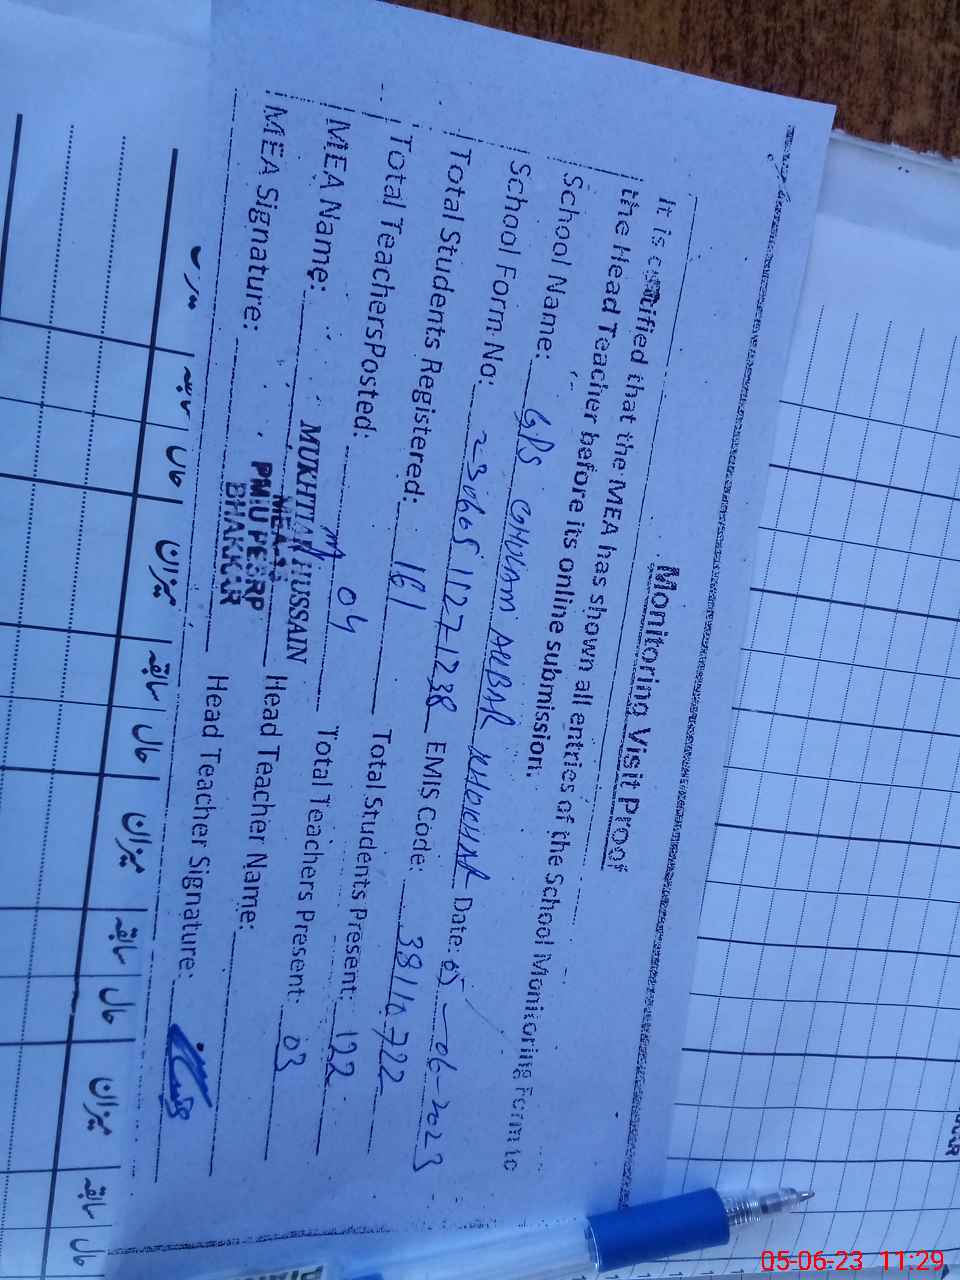 Monitoring Visit Proof
It is certified that the MEA has shown all entries of the School Monitoring Form to
the Head Teacher before its online submission.
School Name: GPS GHULAM AKBAR Date: 05-06-2023
School Form No: 23060511271238 EMIS Code: 38110722
Total Students Registered: 161 Total Students Present: 122
Total Teachers Posted: 04 Total Teachers Present: 03
MEA Name: MUKHTIAR HUSSAIN Head Teacher Name:
MEA
PMIU PESRP
BHAKKAR
MEA Signature: Head Teacher Signature:
مدرسہ سابقہ حال میزان سابقہ حال میزان سابقہ حال میزان سابقہ حال
05-06-23 11:29